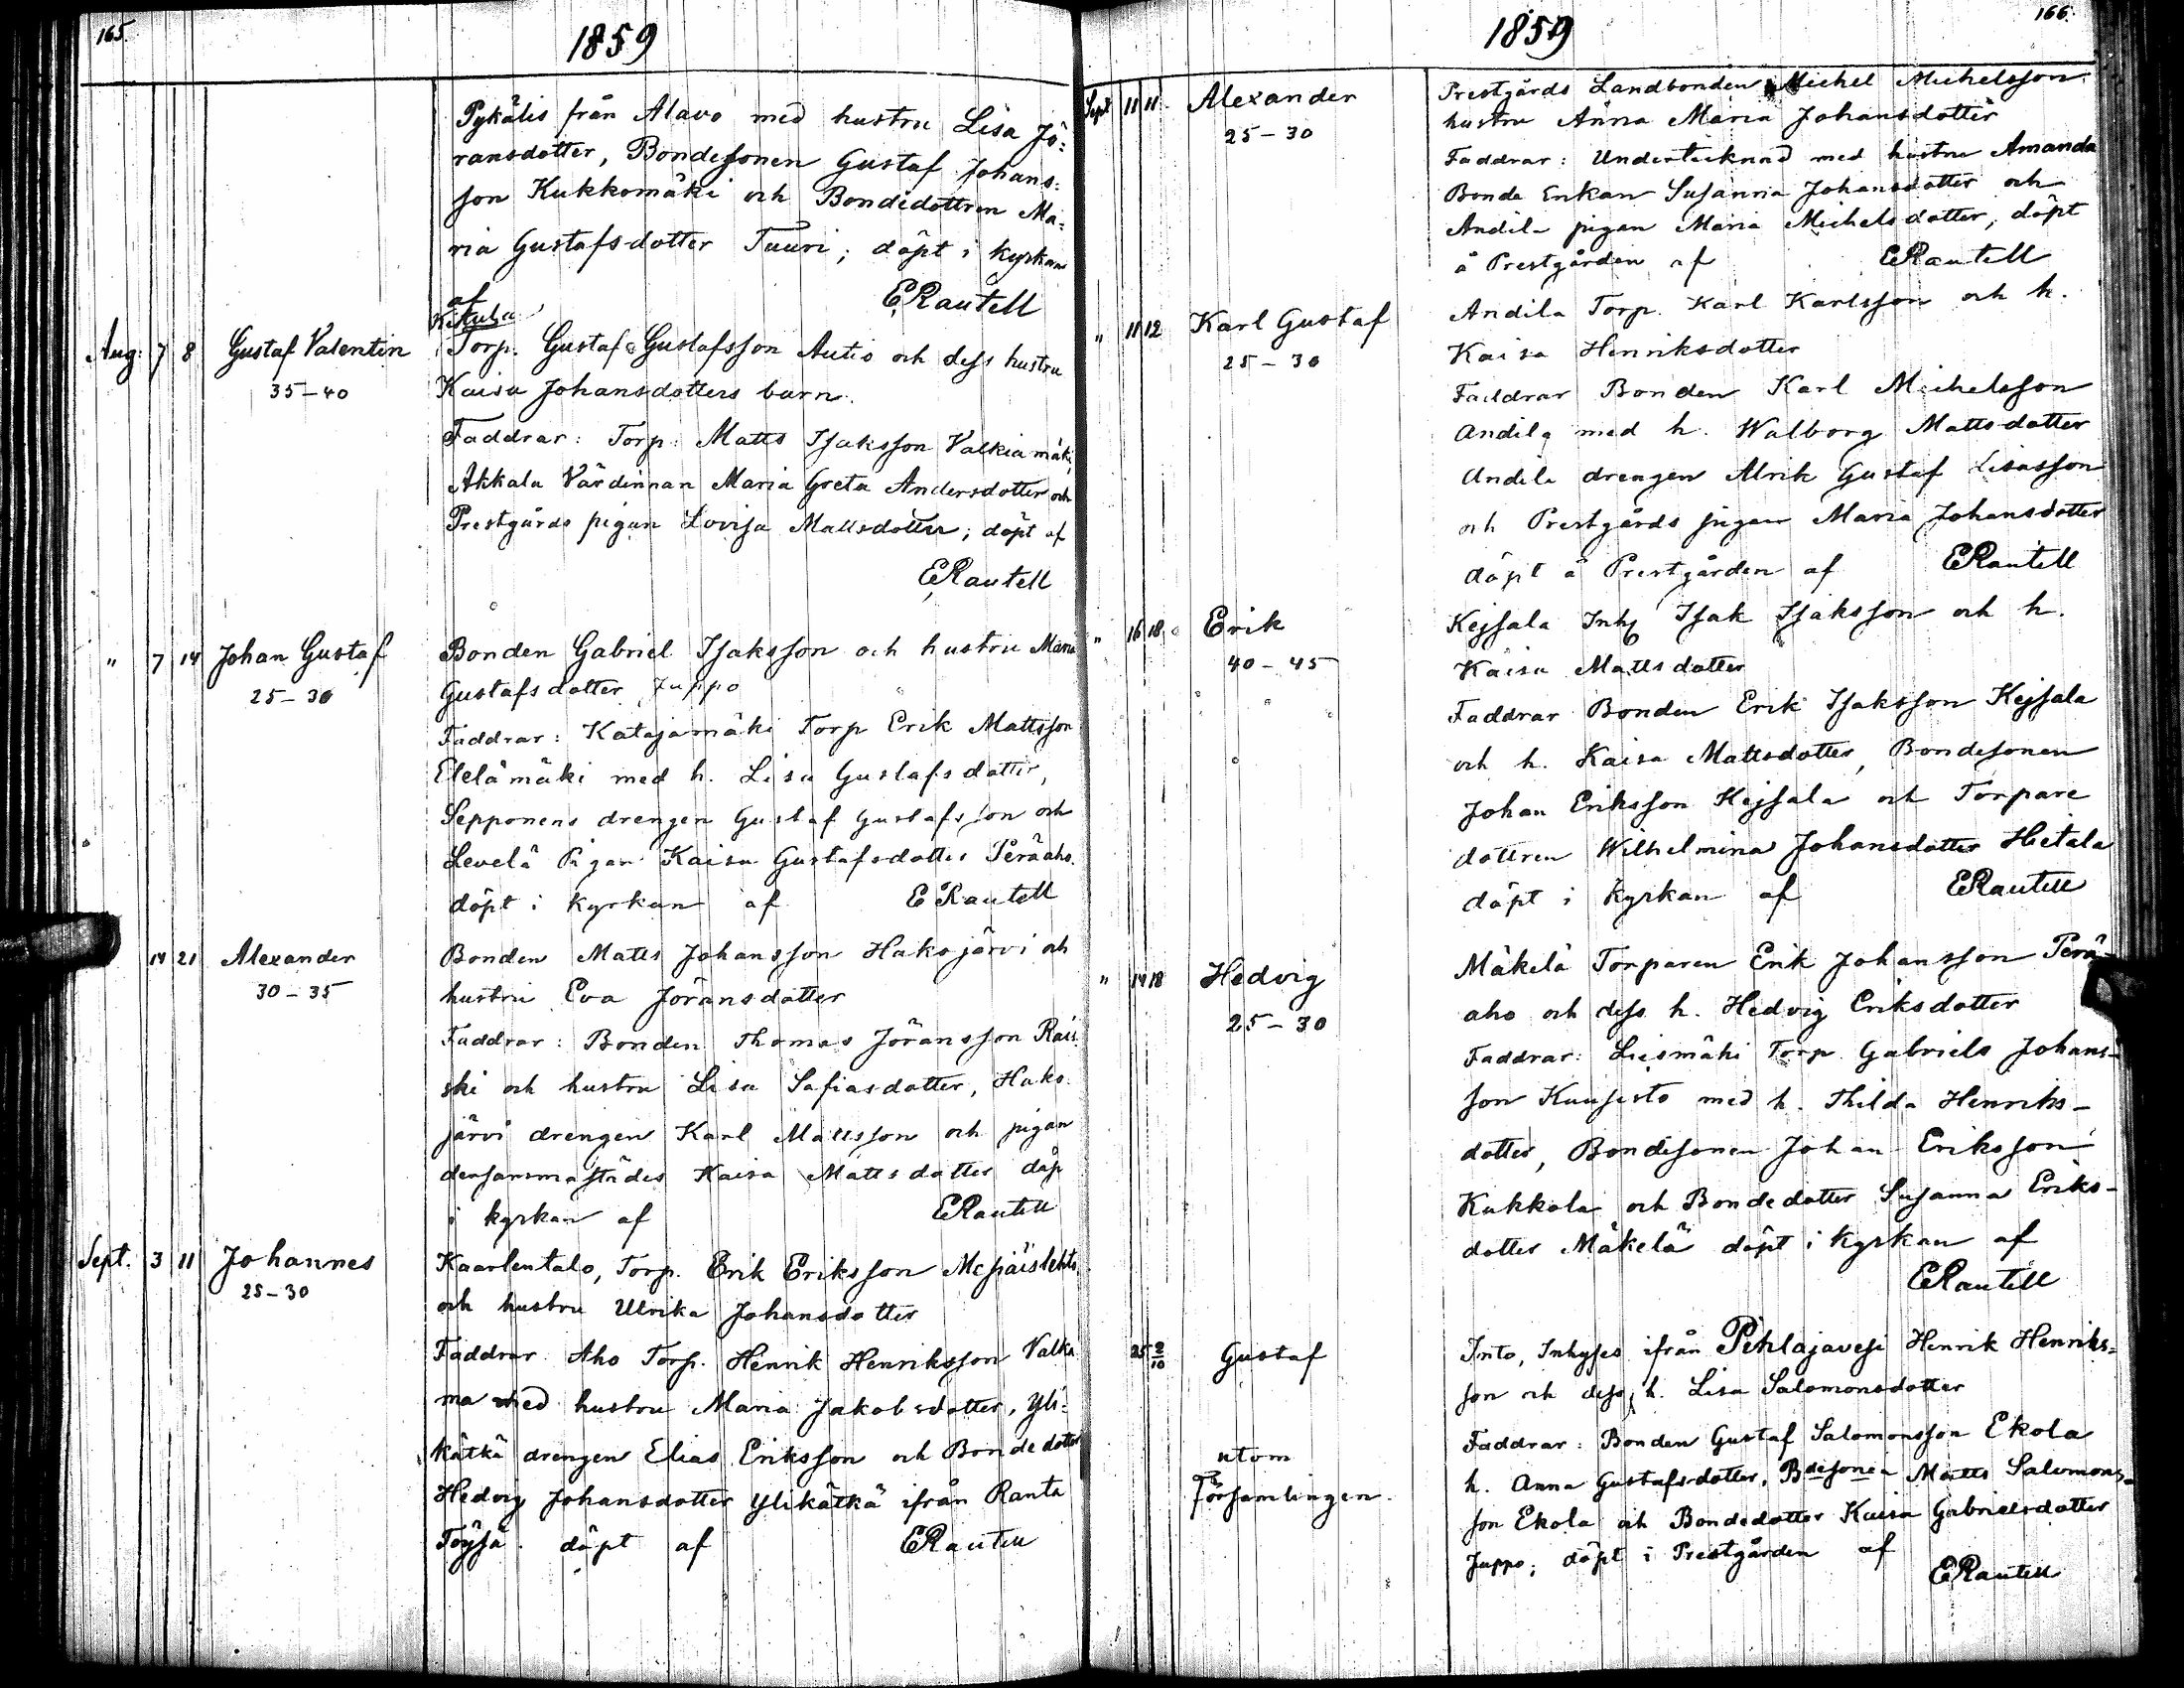 165.
1859
Pykälis från Alavo med hustru Lisa Jö:
ransdotter, Bondesonen Gustaf Johans:
son Kukkomäki och Bondedottren Ma:
ria Gustafsdotter Tuuri; döpt i kyrkan
af ERautell
Aug: 7 8 Gustaf Valentin
35-40
Torp. Gustaf Gustafsson Autio och dess hustru
Kaisa Johansdotters barn.
Faddrar: Torp: Matts Isaksson Valkiamäki,
Akkala Värdinnan Maria Greta Andersdotter och
Prestgårds pigan Lovisa Mattsdotter; döpt af
ERautell
" 7 14 Johan Gustaf
25-30
Bonden Gabriel Isaksson och hustru Maria
Gustafsdotter Juppo
Faddrar: Katajamäki Torp Erik Mattsson
Etelämäki med h. Lisa Gustafsdotter,
Sepponens drengen Gustaf Gustafsson och
Levelä Pigan Kaisa Gustafsdotter Peräaho.
döpt i kyrkan af ERautell
14 21 Alexander
30-35
Bonden Matts Johansson Hakojärvi och
hustru Eva Jöransdotter
Faddrar: Bonden Thomas Jöransson Rais
ski och hustru Lisa Safiasdotter, Hako
järvi drengen Karl Mattsson och pigan
densammastädes Kaisa Mattsdotter döp
i kyrkan af ERautell
Sept. 3 11 Johannes
25-30
Kaarlentalo, Torp. Erik Eriksson
och hustru Ulrika Johansdotter
Faddrar Aho Torp. Henrik Henriksson Valka
ma med hustru Maria Jakobsdotter, Yli:
kätkä drengen Elias Eriksson och Bondedotter
Hedvig Johansdotter Ylikätkä ifrån Ranta
Töysä. döpt af ERautell
166.
1859
Sept 11 11 Alexander
25-30
Prestgårds Landbonden Michel Michelsson
hustru Anna Maria Johansdotter
Faddrar: Undertecknad med hustru Amanda
Bonde Enkan Susanna Johansdotter och
Andila pigan Maria Michelsdotter, döpt
å Prestgården af ERautell
" 11 12 Karl Gustaf
25-30
Andila Torp. Karl Karlsson och h.
Kaisa Henriksdotter
Faddrar Bonden Karl Michelsson
Andila med h. Walborg Mattsdotter
Andila drengen Alrik Gustaf Lisasson
och Prestgårds pigan Maria Johansdotter
döpt å Prestgården af ERautell
" 16 18 Erik
40-45
Kejsala Inh Isak Isaksson och h.
Kaisa Mattsdotter
Faddrar Bonden Erik Isaksson Kejsala
och h. Kaisa Mattsdotter, Bondesonen
Johan Eriksson Kejsala och Torpare
dottren Wilhelmina Johansdotter Hietala
döpt i kyrkan af ERautell
" 14 18 Hedvig
25-30
Mäkelä Torparen Erik Johansson Perä-
aho och dess h. Hedvig Eriksdotter
Faddrar: Liesmäki Torp Gabriels Johans-
son Kuusisto med h. Thilda Henriks-
dotter, Bondesonen Johan Eriksson
Kukkola och Bondedotter Susanna Eriks-
dotter Mäkelä döpt i kyrkan af
ERautell
25 2/10 Gustaf
utom
församlingen.
Into, Inhyses ifrån Pihlajavesi Henrik Henriks=
son och dess h. Lisa Salomonsdotter
Faddrar: Bonden Gustaf Salomonsson Ekola
h. Anna Gustafsdotter, Bdesonen Matts Salomons=
son Ekola och Bondedotter Kaisa Gabrielsdotter
Juppo; döpt i Prestgården af
ERautell